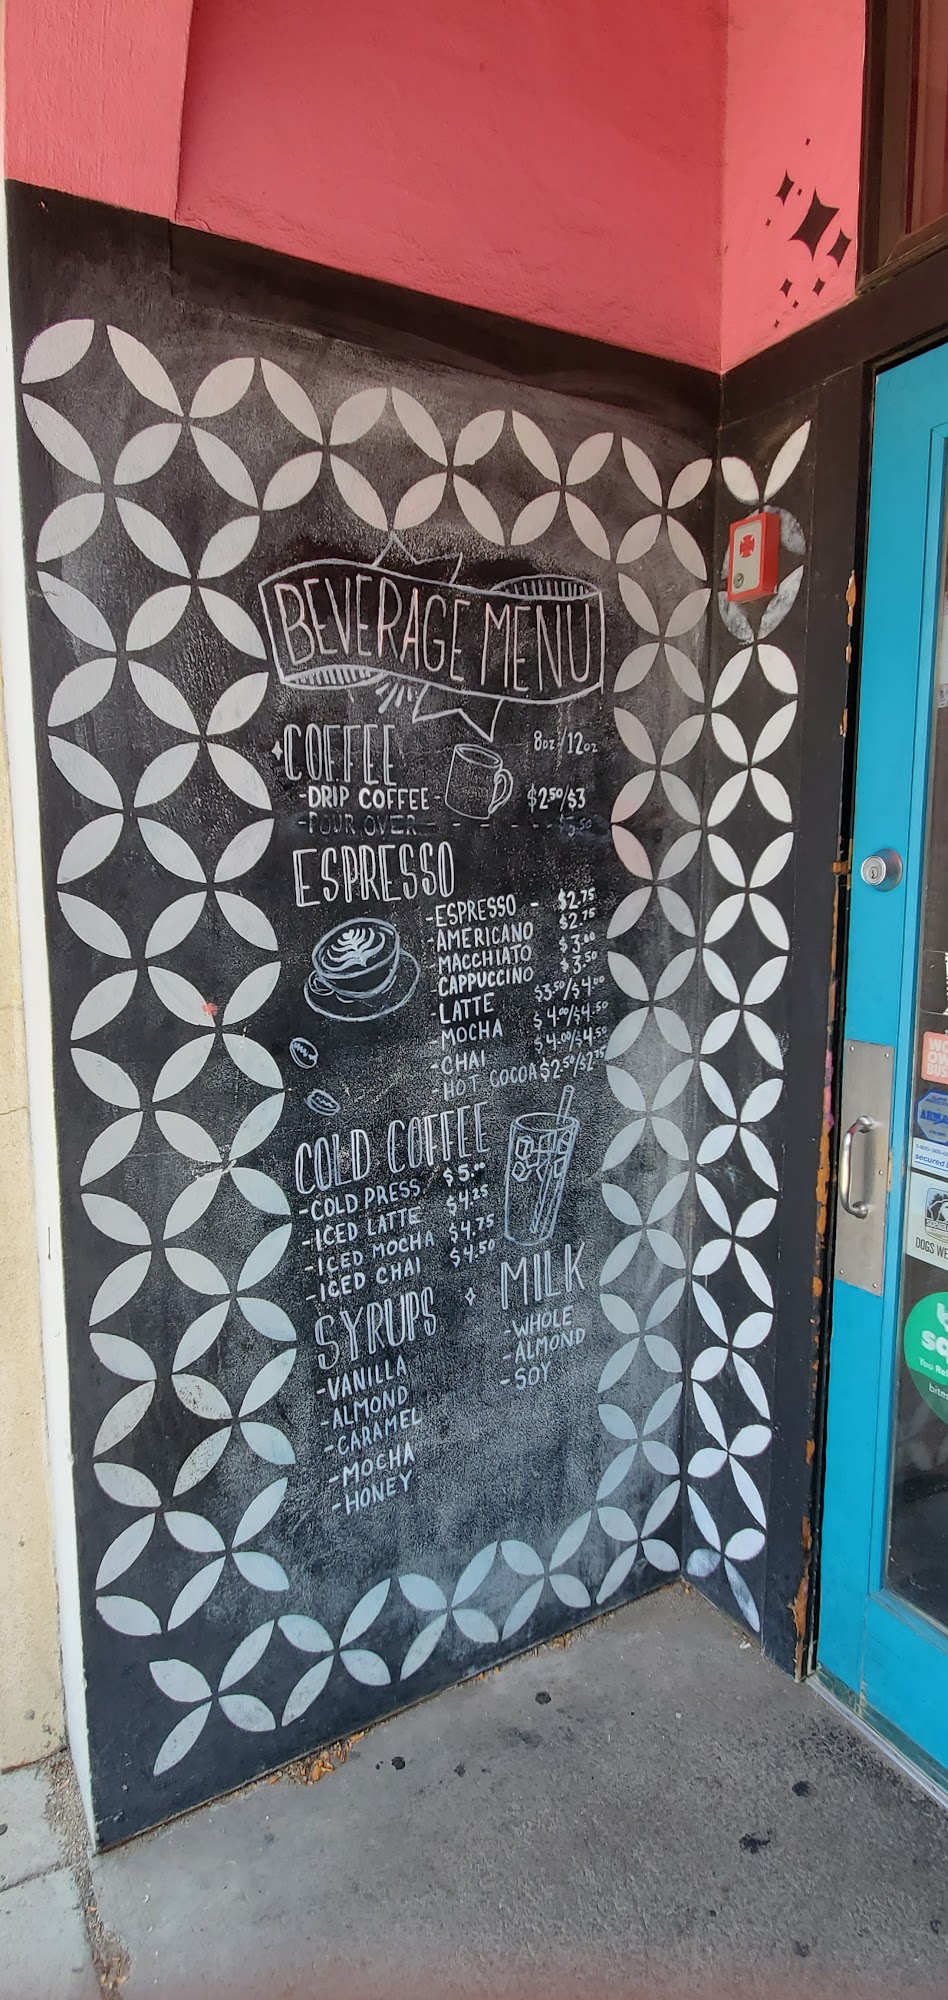 BEVERAGE MENU
COFFEE 8oz/12oz
-DRIP COFFEE- $2.50/$3
-POUR OVER - - - - - - $3.50
ESPRESSO
-ESPRESSO - $2.75
-AMERICANO $2.75
MACCHIATO $3.00
-CAPPUCCINO $3.50
-LATTE $3.50/$4.00
-MOCHA $4.00/$4.50
-CHAI $4.00/$4.50
-HOT COCOA $2.50/$2.75
COLD COFFEE
-COLD PRESS $5.00
-ICED LATTE $4.25
-ICED MOCHA $4.75
-ICED CHAI $4.50
SYRUPS
-VANILLA
-ALMOND
-CARAMEL
-MOCHA
-HONEY
MILK
-WHOLE
-ALMOND
-SOY
DOGS WE